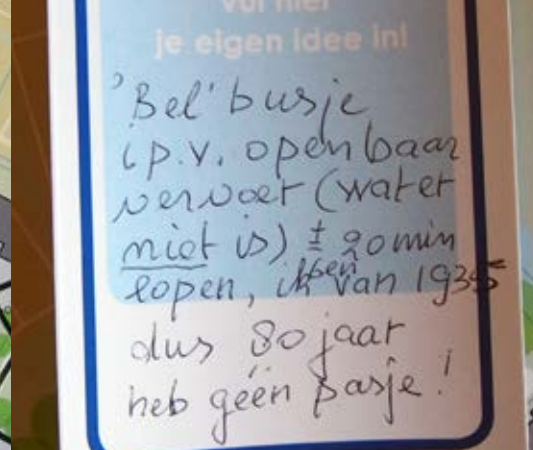 Vul hier
je eigen idee in!
'Bel' busje
i.p.v. openbaar
vervoer (wat er
niet is) ± 20 min
lopen, ik ben van 1935
dus 80 jaar
heb géén pasje!